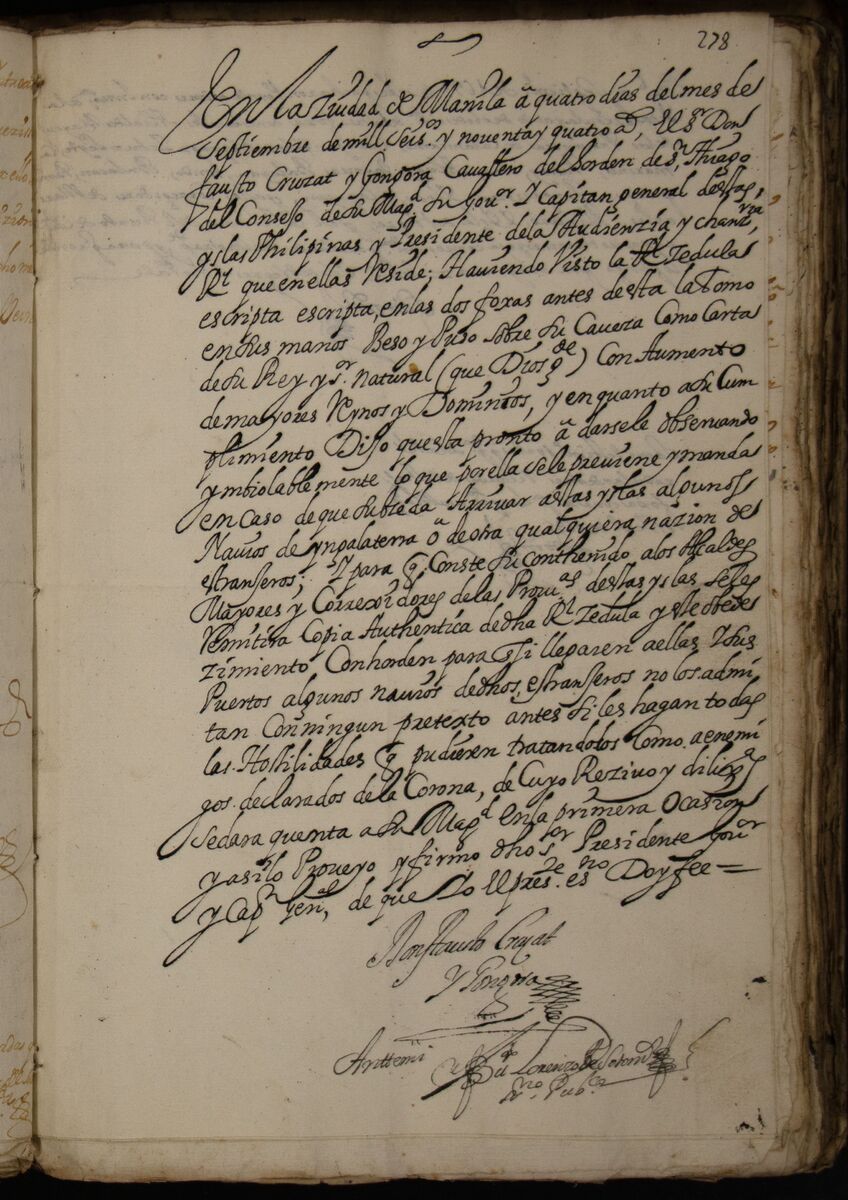 278
En la Ziudad de Manila â quatro dias del mes de
Septiembre de mill. Seisos. y noventa y quatro as, El Sr Don
fausto Cruzat y Gongora Cavallero del horden de Sr. Thiago
del Consejo de Su Magd. Su Gour. Y Capitan general destas,
yslas Philipinas y Presidente de la Audienzia y chanzria
Rl que en ellas Reside; Haviendo Visto la Rl Zedula
escripta escripta, en las dos foxas antes desta la Tomo
en sus manos Beso y Puso sobre su Caveza Como Carta
de su Rey y Sr. natural (que Dios gde) Con Aumento
de mayores Reynos y Dominios, y en quanto a su Cum
plimiento Dijo questa pronto â darsele observando
ymbiolablemente lo que por ella se le previene y manda
en Caso de que subceda Arrivar a estas yslas algunos
Navios de ynglaterra ô de otra qualquiera nazion de
estranjeros; Y para q. Conste su conthenido a los Alcaldes
Mayores y Correxidores de las Provas destas yslas se les
Remitira Copia Authentica de dha Rl Zedula y este obede
zimiento Con horden para q si llegaren a ellas Y sus
Puertos algunos navios de dhos, estranjeros no los admi
tan Con ningun pretexto antes si les hagan todas
las Hostilidades q pudieren tratandolos Como a enemi
gos declarados de la Corona, de Cuyo Rezivo y diligas
se dara quenta a Su Magd en la primera Ocasion
y asi lo Proveyo y firmo dho Sor Presidente Gour
y Capn Genl, de que Yo el preste. esno Doy fee =
Don fausto Cruzat
Y Gongora
Anttemi
Lorenzo de
no. Pubco